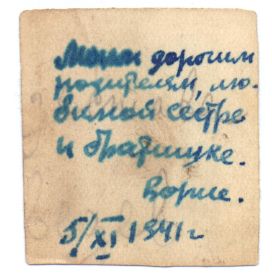 Моим дорогим
родителям, лю-
бимой сестре
и братишке.
Борис.
5/XI 1941 г